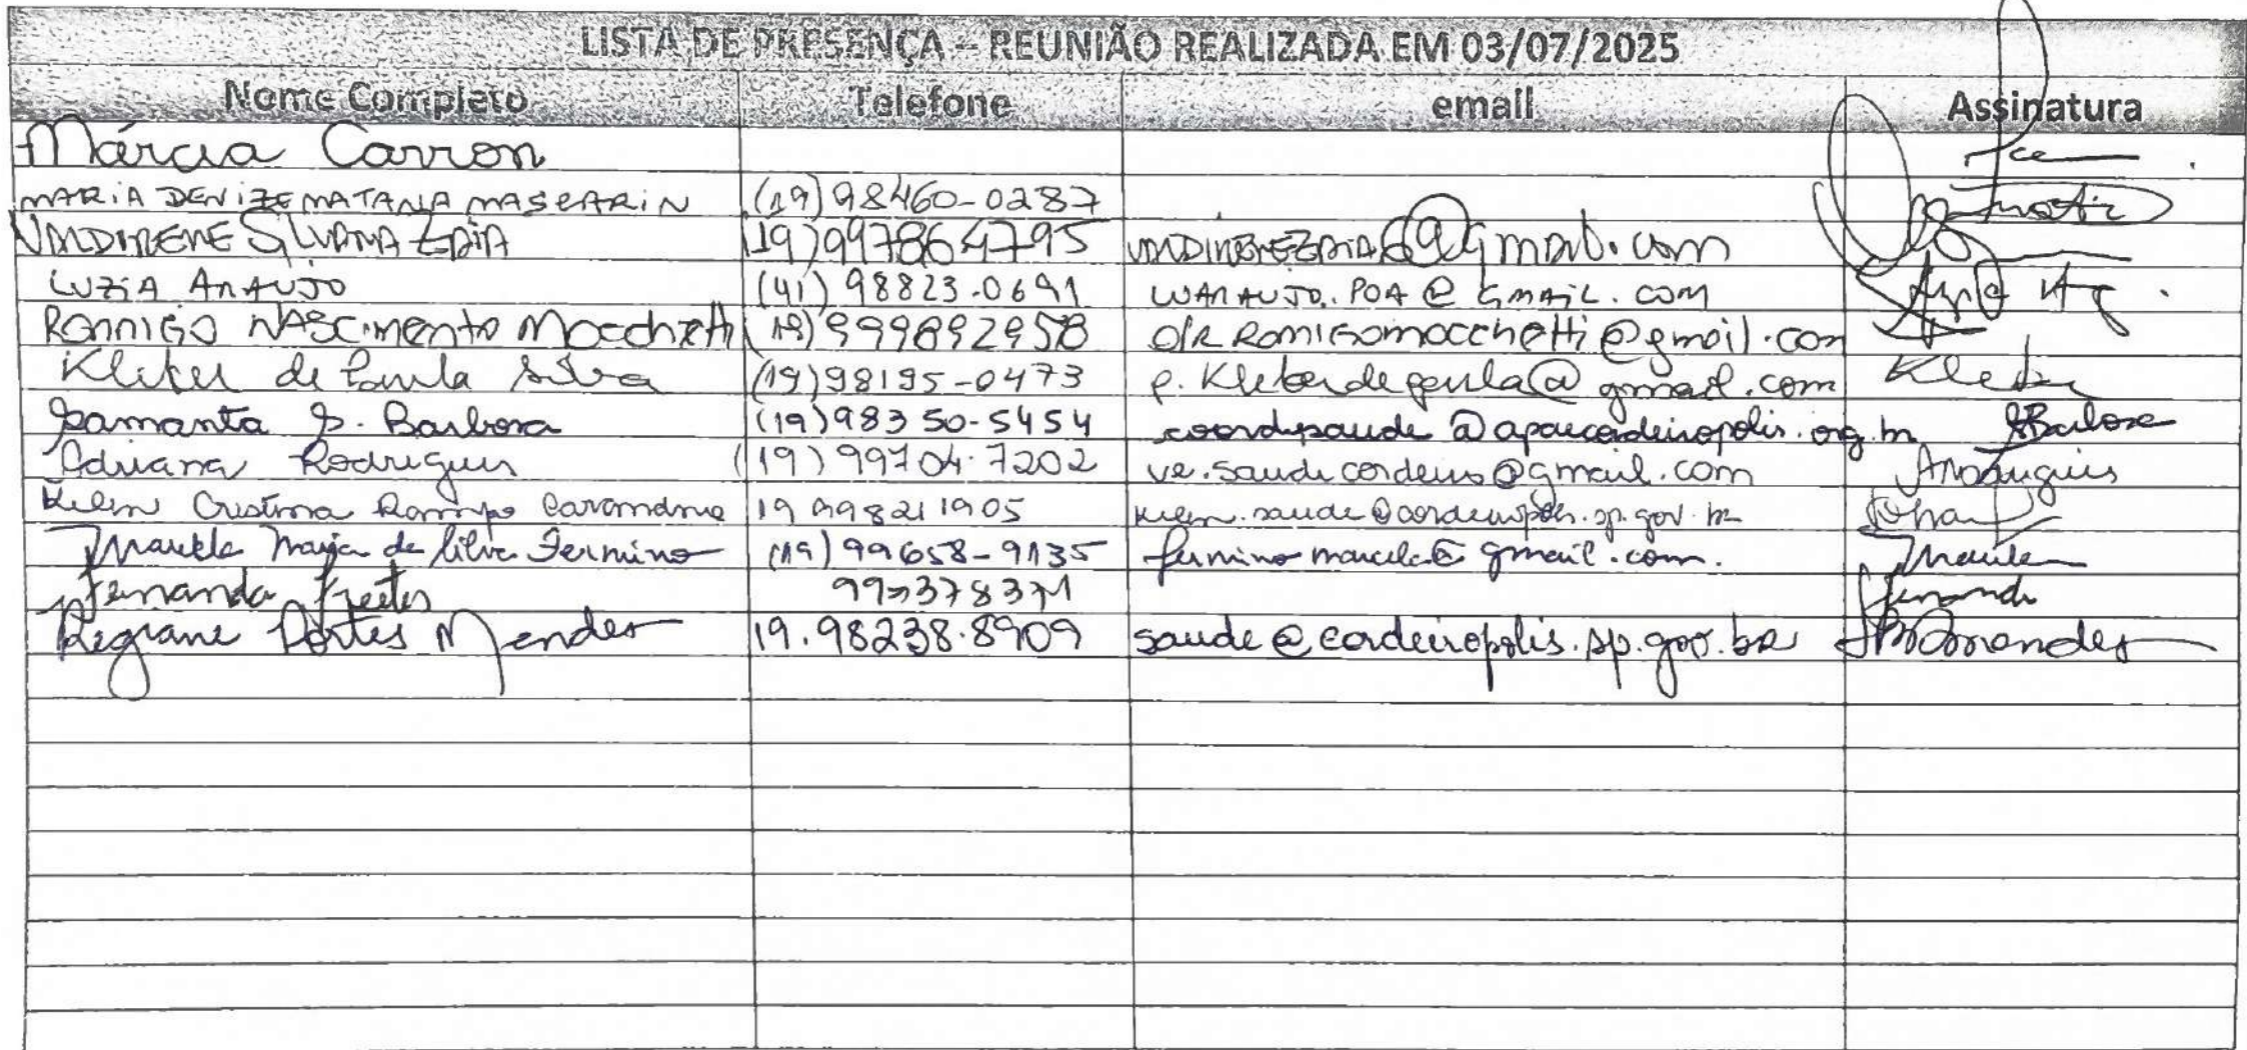 LISTA DE PRESENÇA – REUNIÃO REALIZADA EM 03/07/2025
Nome Completo Telefone email Assinatura
Márcia Carron
MARIA DENIZE MATANA MASCARIN (19) 98460-0287
VALDIRENE SILVANA ZAIA (19) 997864795
LUZIA ARAUJO (41) 98823-0691 LUARAUJO.POA@GMAIL.COM
RODRIGO NASCIMENTO Mocchetti (19) 999892958
Kleber de Paula Silva (19) 98195-0473 p.kleberdepaula@gmail.com Kleber
Samanta S. Barbosa (19) 98350-5454 coordsaude@apaecordeiropolis.org.br SBarbosa
Adriana Rodrigues (19) 99704-7202 ve.saude.cordeiro@gmail.com ARodrigues
Cristina 19 998211905 saude@cordeiropolis.sp.gov.br
Marcela Maria da Silva Fermino (19) 99658-9135 ferminomarcela@gmail.com. Marcela
Fernanda Freitas Fernanda
Regiane Portes Mendes 19.98238.8909 saude@cordeiropolis.sp.gov.br